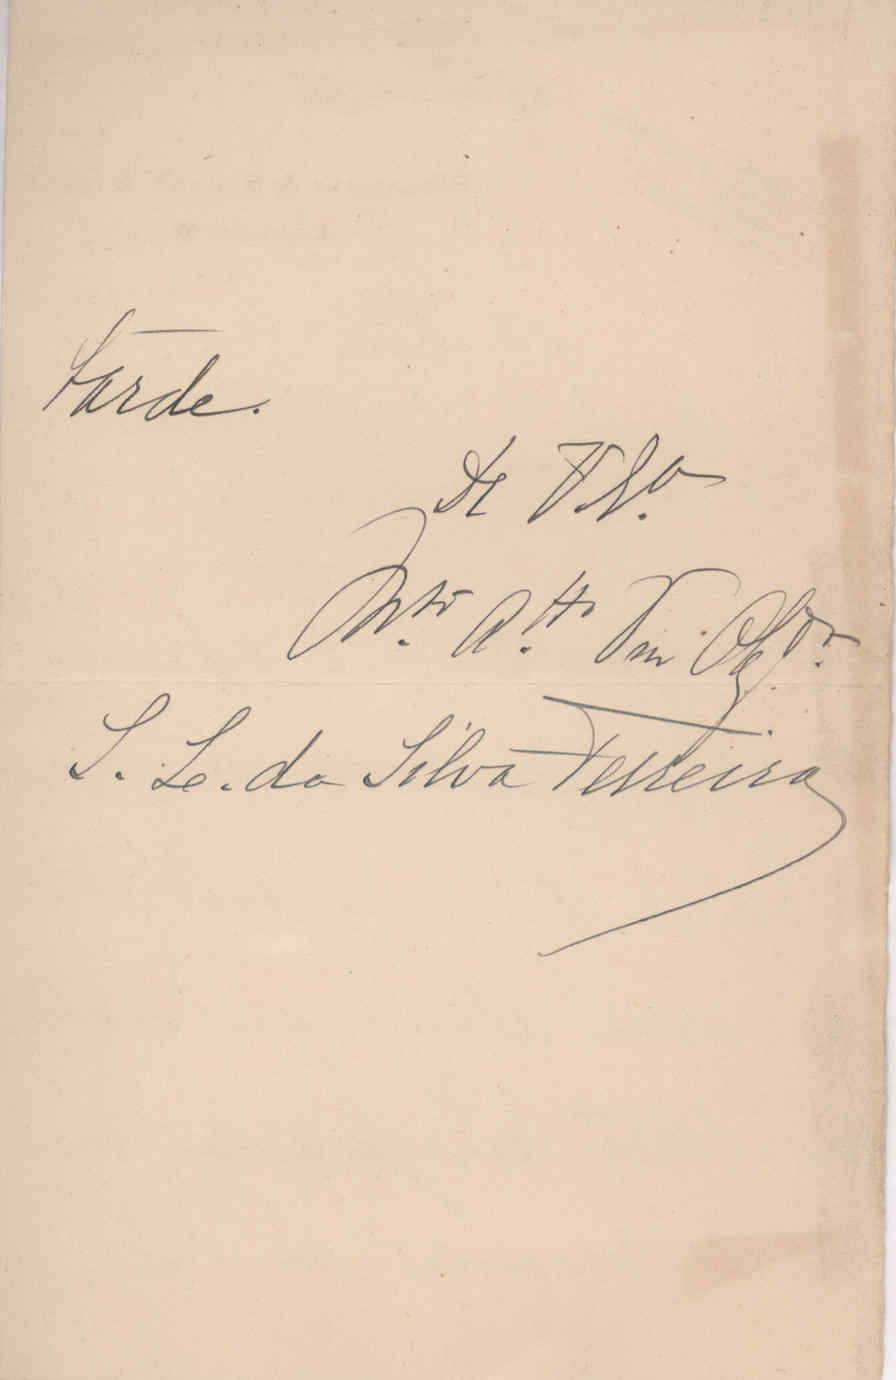 tarde.
De V. S.ª
M.to At.to Vn. Obg.do
S. L. da Silva Ferreira